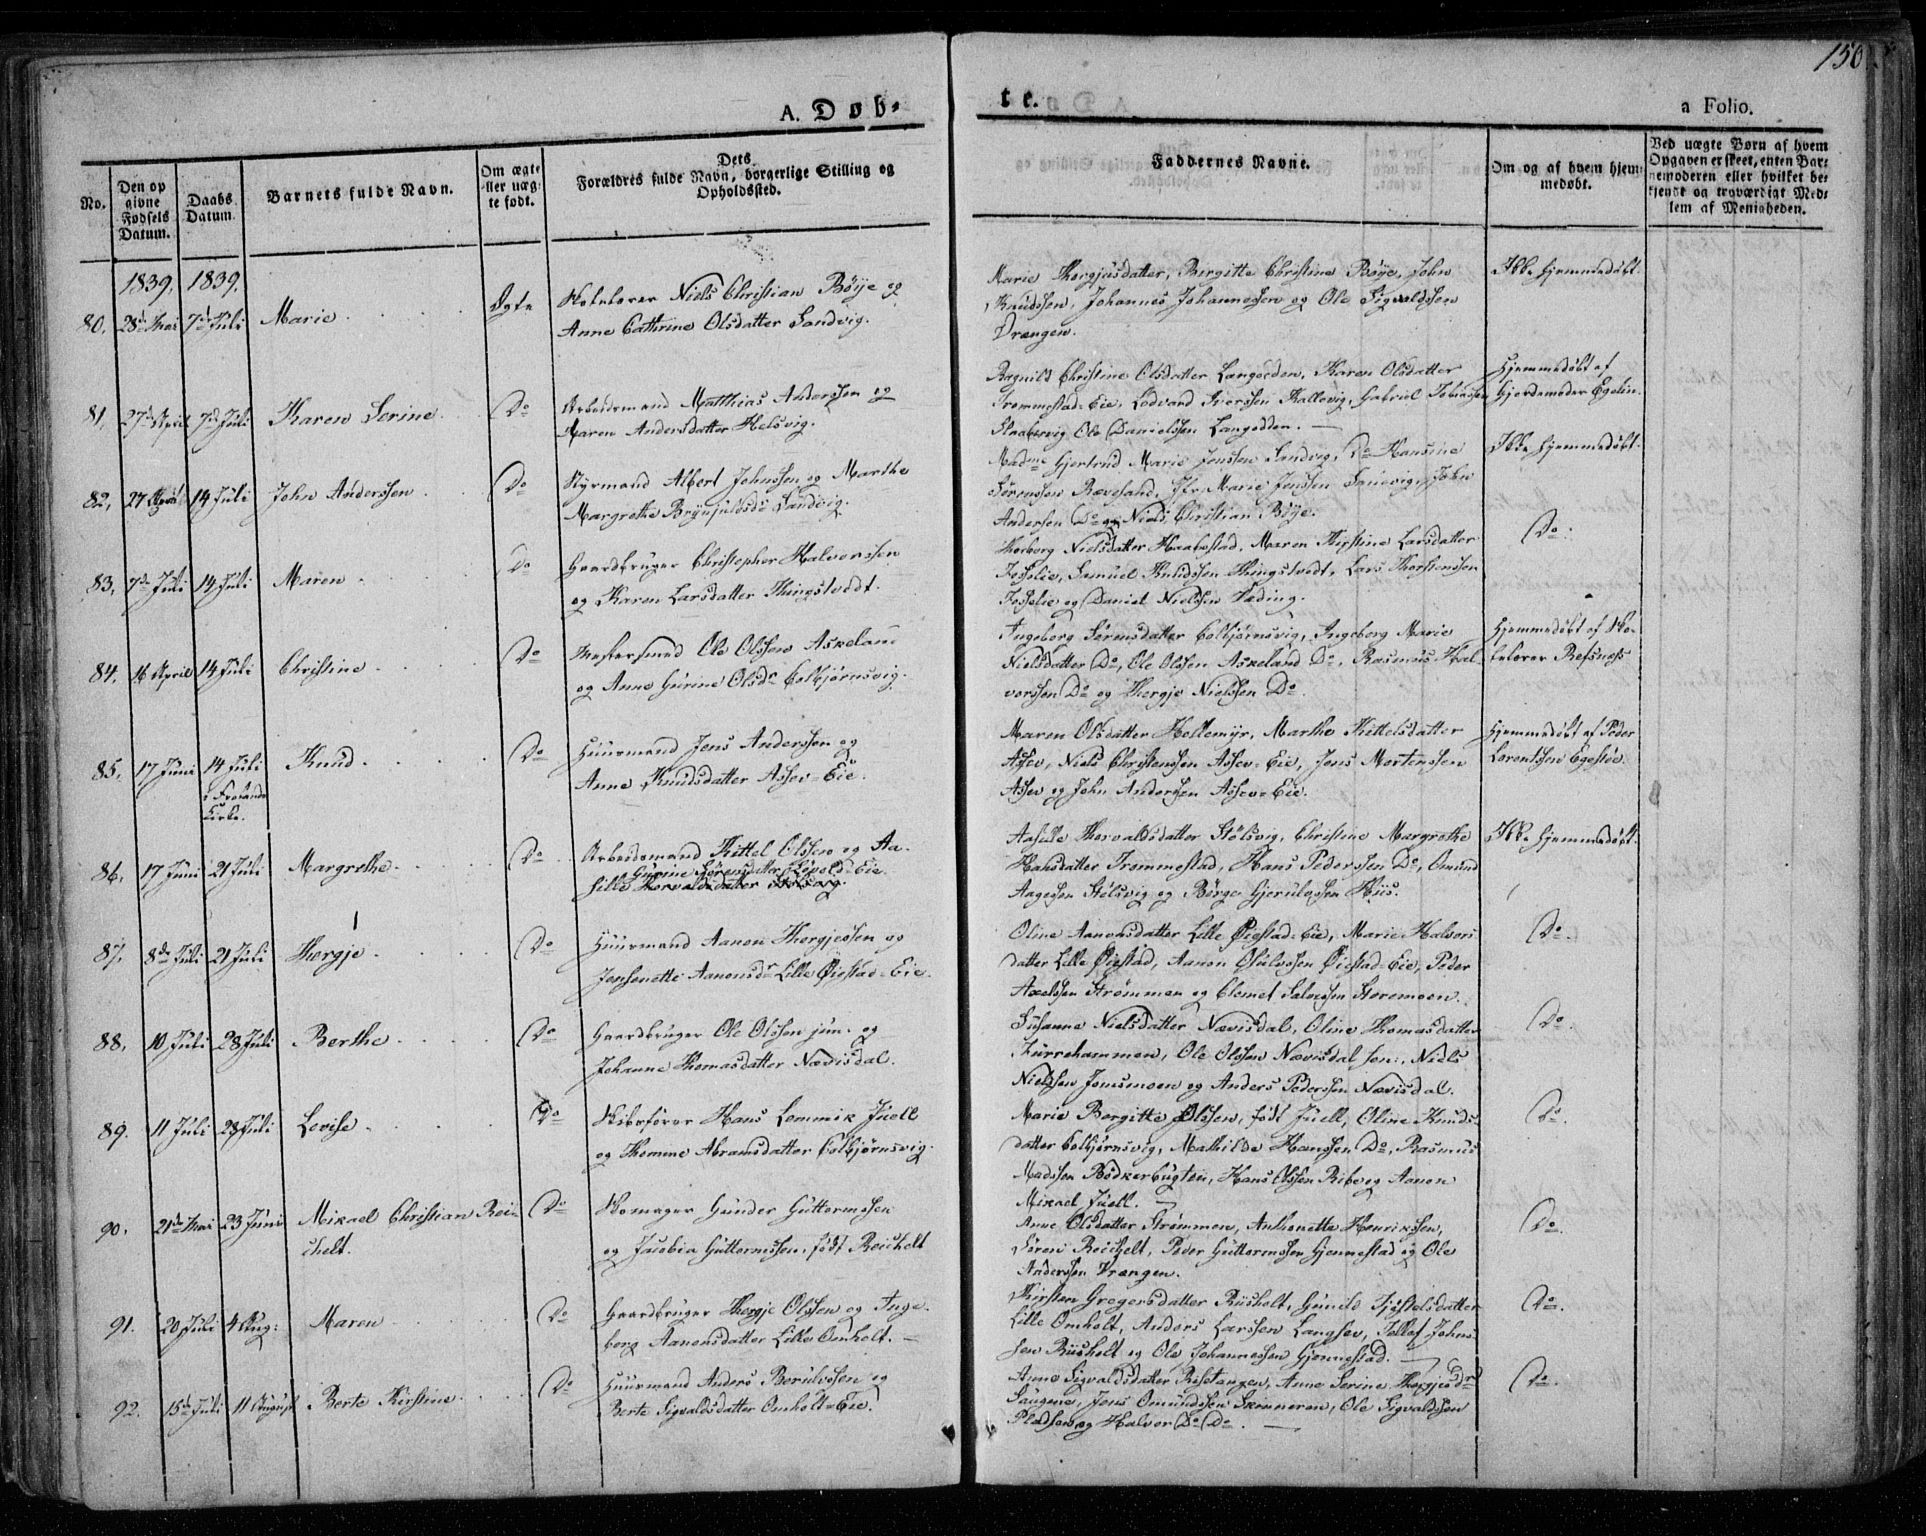 150.
A. Døb-
te.
a Folio.
No.
Den op
givne
Fødsels
Datum.
Daabs
Datum.
Barnets fulde Navn.
Om ægte
eller uæg-
te født.
Dets
Forældres fulde Navn, borgerlige Stilling og
Opholdssted.
Faddernes Navne.
Om og af hvem hjem-
medøbt.
Ved uægte Børn af hvem
Opgaven er skeet, enten Bar-
nemoderen eller hvilket be-
kjendt og troværdigt Med-
lem af Menigheden.
1839. 1839.
80. 28de Mai 7de Juli Marie Ægte
Niels Christian Böije og
Anne Cathrine Olsdatter Sandvig.
Marie Thorgjusdatter, Birgitte Christine Böije, John
Knudssen, Johannes Johannessen og Ole Sigvaldssen
Vrængen.
Ikke hjemmedöbt.
81. 27de April 7de Juli Karen Serine Do
Arbeidsmand Matthias Anderssen og
Maren Andersdatter Helsvig.
Ragnild Christine Olsdatter Langodden, Karen Olsdatter
Trommestad-Eie, Lodvard Iverssen Kallevig, Gabriel Tobiassen
Ole Danielssen Langodden.
Hjemmedöbt af
Gjordemoder Egelin.
82. 27 April 14 Juli John Anderssen Do
Styrmand Albert Johnssen og Marthe
Margrethe Brynjuldsdr Sandvig.
Madme Gjertrud Marie Jenssen Sandvig, Do Hansine
Sörenssen Rævesand, Jfr. Marie Jenssen Sandvig, John
Andersen Do og Niels Christian Böije.
Ikke hjemmedöbt.
83. 7de Juli 14 Juli Maren Do
Gaardbruger Christopher Halvorssen
og Karen Larsdatter Thingstvedt.
Thorborg Nielsdatter Haabestad, Maren Kirstine Larsdatter
Fosselie, Samuel Knudssen Thingstvedt, Lars Thorstenssen
Fosselie og Daniel Nielssen Væding.
Do.
84. 16 April 14 Juli Christine Do
Ole Olssen Askeland
og Anne Gurine Olsdr Colbjörnsvig.
Ingeborg Sörensdatter Colbjörnsvig, Ingeborg Marie
Nielsdatter Do, Ole Olssen Askeland Do, Rasmus Hal-
vorssen Do og Thorgje Nielssen Do.
Hjemmedöbt af Sko-
lelærer Refsness
85. 17 Juni 14 Juli Knud Do
i Frolands
Kirke.
Huusmand Jens Anderssen og
Anne Knudsdatter Assev-Eie.
Maren Olsdatter Hellemyr, Marthe Kittelsdatter
Assev, Niels Christenssen Assev-Eie, Jens Mortenssen
Assev og John Anderssen Assev-Eie.
Hjemmedöbt af Peder
Lorentssen Egestöe.
86. 17 Juni 21 Juli Margrethe Do
Arbeidsmand Kittel Olssen og Aa-
Gurine Sörensdatter Eie.
sille Thorvaldsdatter
Aasille Thorvaldsdatter Stölsvig, Christine Margrethe
Hansdatter Trommestad, Hans Pederssen Do, Omund
Aagesen Stölsvig og Börge Gjerulvssen Hiis.
Ikke hjemmedöbt.
87. 8de Juli 21 Juli Thorgje Do
Huusmand Aanon Thorgjessen og
Jensenette Aanonsdr Lille Öiestad-Eie.
Oline Aanonsdatter Lille Öiestad-Eie, Marie Halvors-
datter Lille Öiestad, Aanon Osulvssen Öiestad-Eie, Peder
Axelssen Strömmen og Clemet Salvessen Storemoen.
Do.
88. 10 Juli 28 Juli Berthe Do
Gaardbruger Ole Olssen jun. og
Johanne Thomasdatter Nævisdal.
Susanne Nielsdatter Nævisdal, Oline Thomasdatter
Kurrehammen, Ole Olssen Nævisdal sen., Niels
Nielssen Jomsmoen og Anders Pederssen Nævisdal.
Do.
89. 11 Juli 28 Juli Lovise Do
Skibsförer Hans Lemmik Juell
og Thomine Abramsdatter Colbjörnsvig.
Marie Borgitte Olssen, födt Juell, Oline Knuds-
datter Colbjörnsvig, Mathilde Hanssen Do, Rasmus
Madssen Bödkerbugten, Hans Olssen Ribe og Aanon
Mikael Juell.
Do.
90. 21de Mai 23 Juni Mikael Christian Rei-
chelt.
Do
Skomager Gunder Guttormsen
og Jacobia Guttormssen, födt Reichelt
Anne Olsdatter Strömmen, Anthonette Henrikssen,
Sören Reichelt, Peder Guttormssen Gjennestad og Ole
Anderssen Vrængen.
Do.
91. 20 Juli 4 Aug: Maren Do
Gaardbruger Thorgje Olssen og Inge-
borg Aanonsdatter Lille Omholt.
Kirsten Gregersdatter Riisholt, Gunild Tjöstelsdatter
Lille Omholt, Anders Larssen Langsev, Tellef Johns-
sen Riisholt og Ole Johannessen Gjennestad.
Do.
92. 15de Juli 11 August Berte Kirstine Do
Huusmand Anders Berulvssen og
Berte Sigvaldsdatter Omholt-Eie.
Anne Sigvaldsdatter Risetangen, Anne Serine Thorgjesdr
Saugene, Jens Omundssen Skinneren, Ole Sigvaldssen
Pladsen og Halvor Do Do
Do.